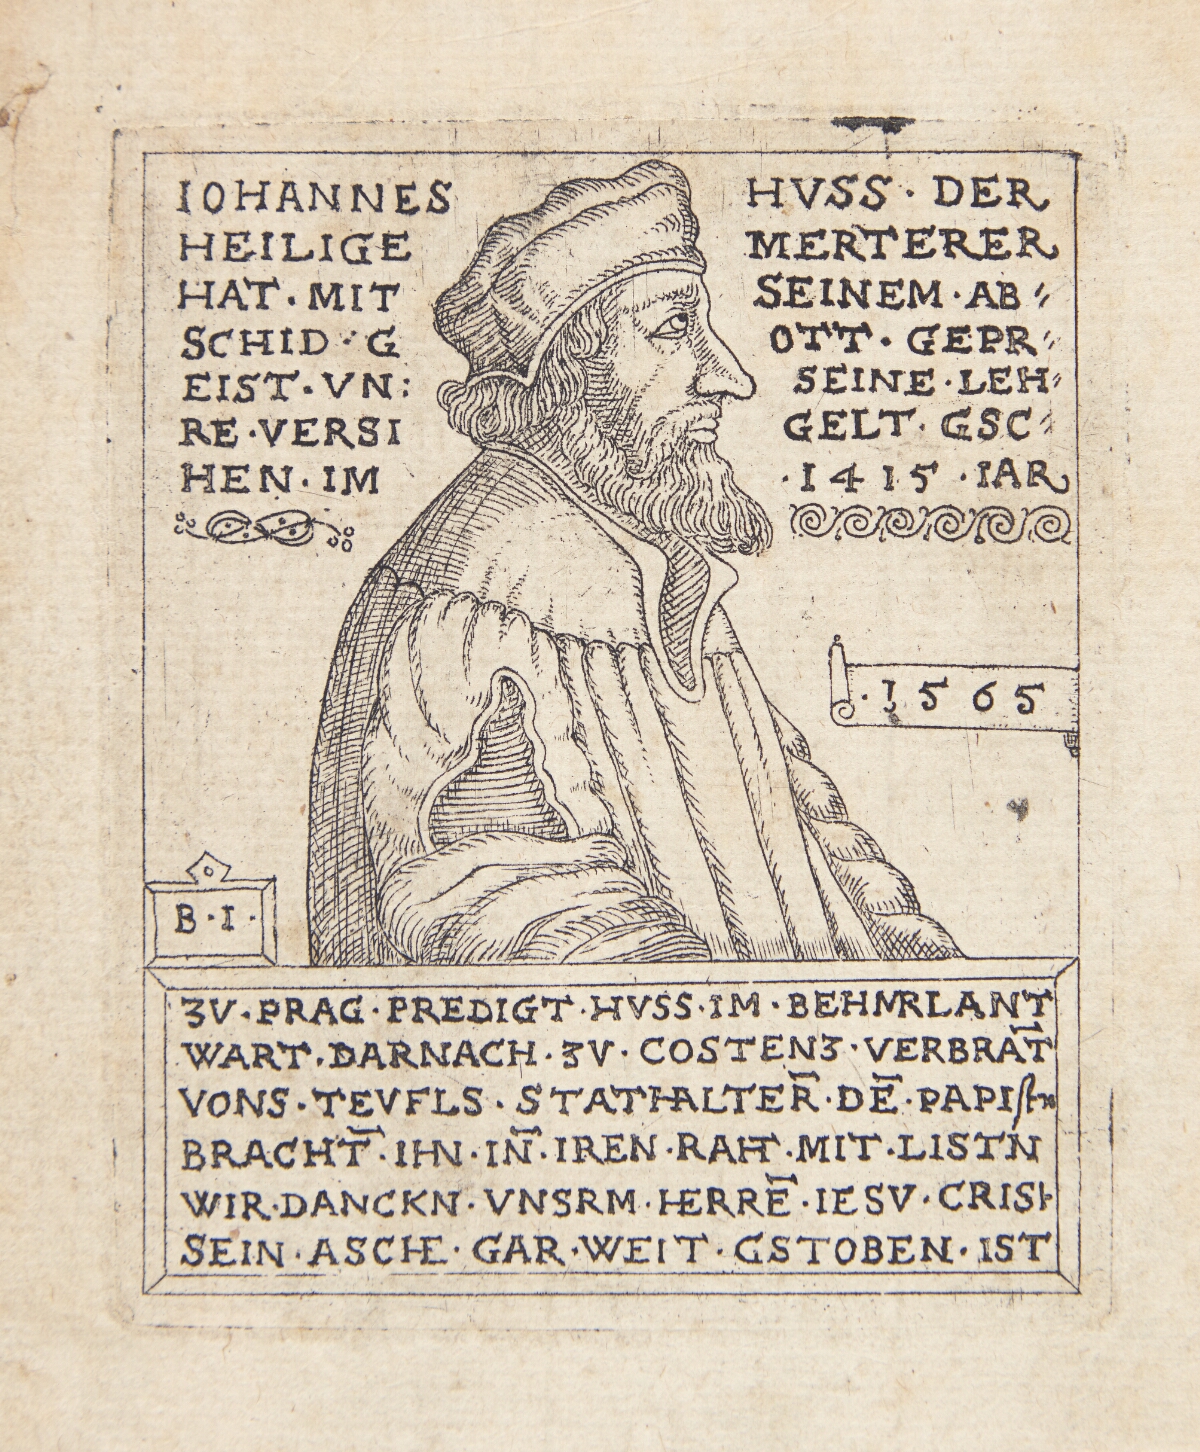 IOHANNES HVSS · DER
HEILIGE MERTERER
HAT · MIT SEINEM · AB⸗
SCHID · G OTT · GEPR⸗
EIST · VN: SEINE · LEH⸗
RE · VERSI GELT · GSC⸗
HEN · IM · 1415 · IAR
· 1565
B · I ·
ZV · PRAG · PREDIGT · HVSS · IM · BEHMRLANT
WART · DARNACH · ZV · COSTENZ · VERBRAT̄
VONS · TEVFLS · STATHALTER̄ · DĒ · PAPISTN
BRACHT̄ · IHN · IN̄ · IREN · RAHT · MIT · LISTN
WIR · DANCKN · VNSRM · HERRĒ · IESV · CRIST
SEIN · ASCHE · GAR · WEIT · GSTOBEN · IST